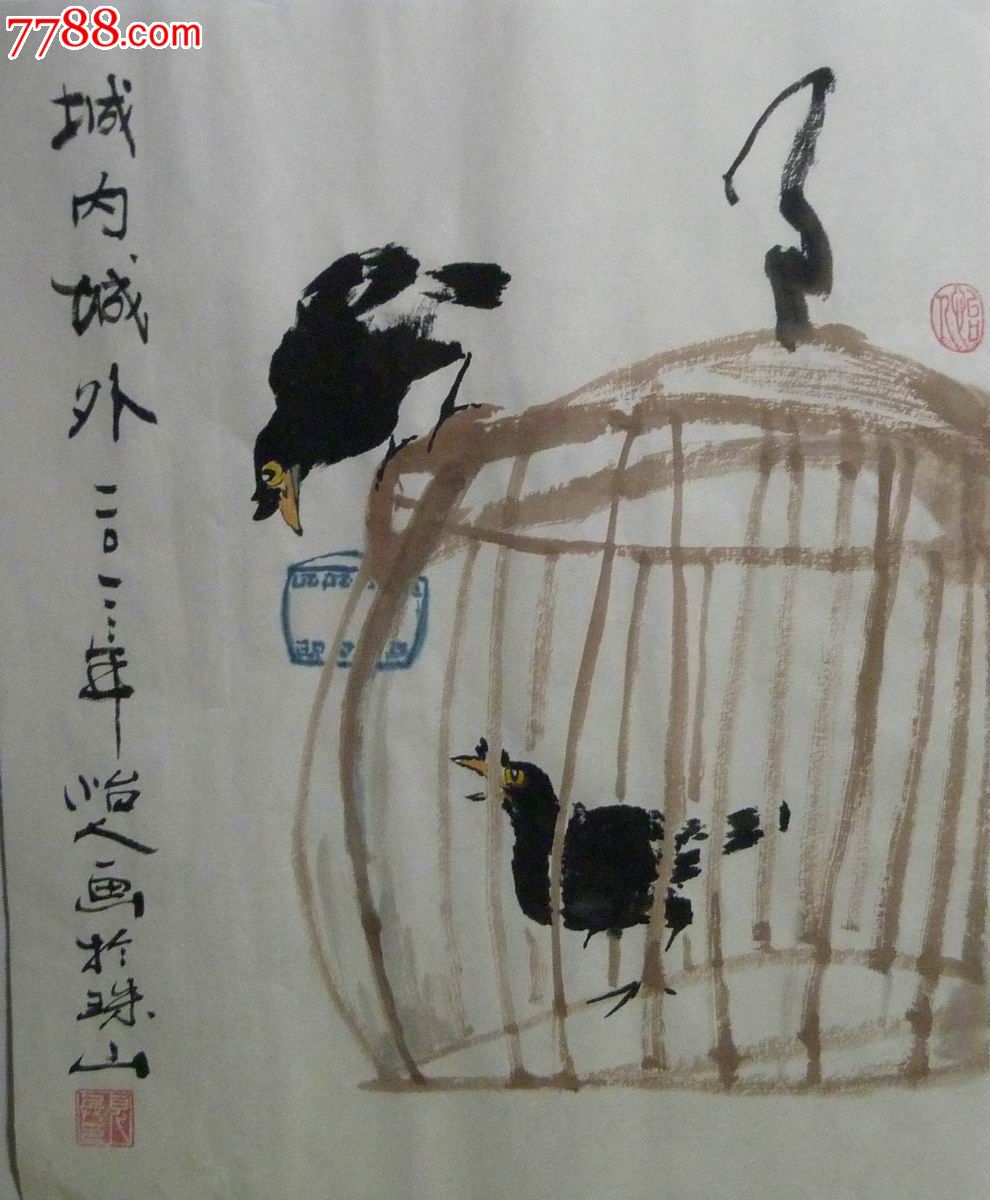 7788.com
城内城外 二〇一二年 怡人画於珠山
怡人